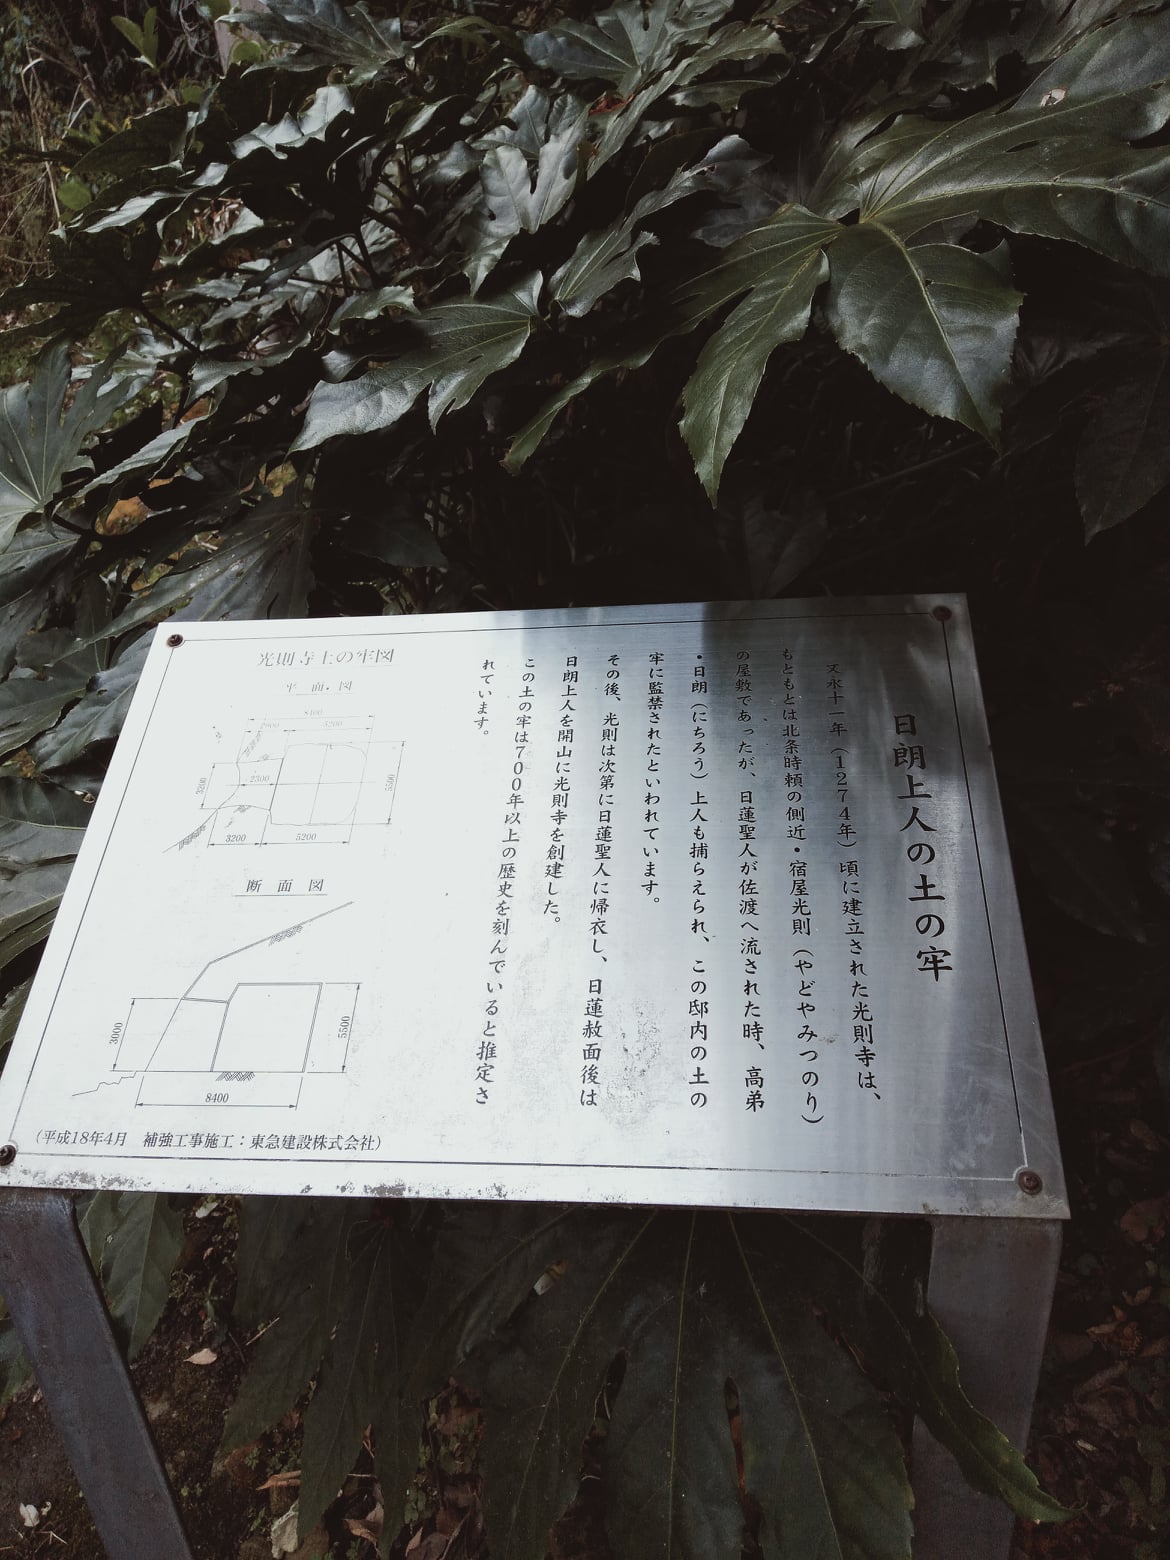 日朗上人の土の牢
文永十一年（1274年）頃に建立された光則寺は、
もともとは北条時頼の側近・宿屋光則（やどやみつのり）
の屋敷であったが、日蓮聖人が佐渡へ流された時、高弟
・日朗（にちろう）上人も捕らえられ、この邸内の土の
牢に監禁されたといわれています。
その後、光則は次第に日蓮聖人に帰衣し、日蓮赦面後は
日朗上人を開山に光則寺を創建した。
この土の牢は700年以上の歴史を刻んでいると推定さ
れています。
光則寺土の牢図
平面図
8400
2900 5200
3200
2300
5500
3200 5200
断面図
3000
5500
8400
（平成18年4月　補強工事施工：東急建設株式会社）